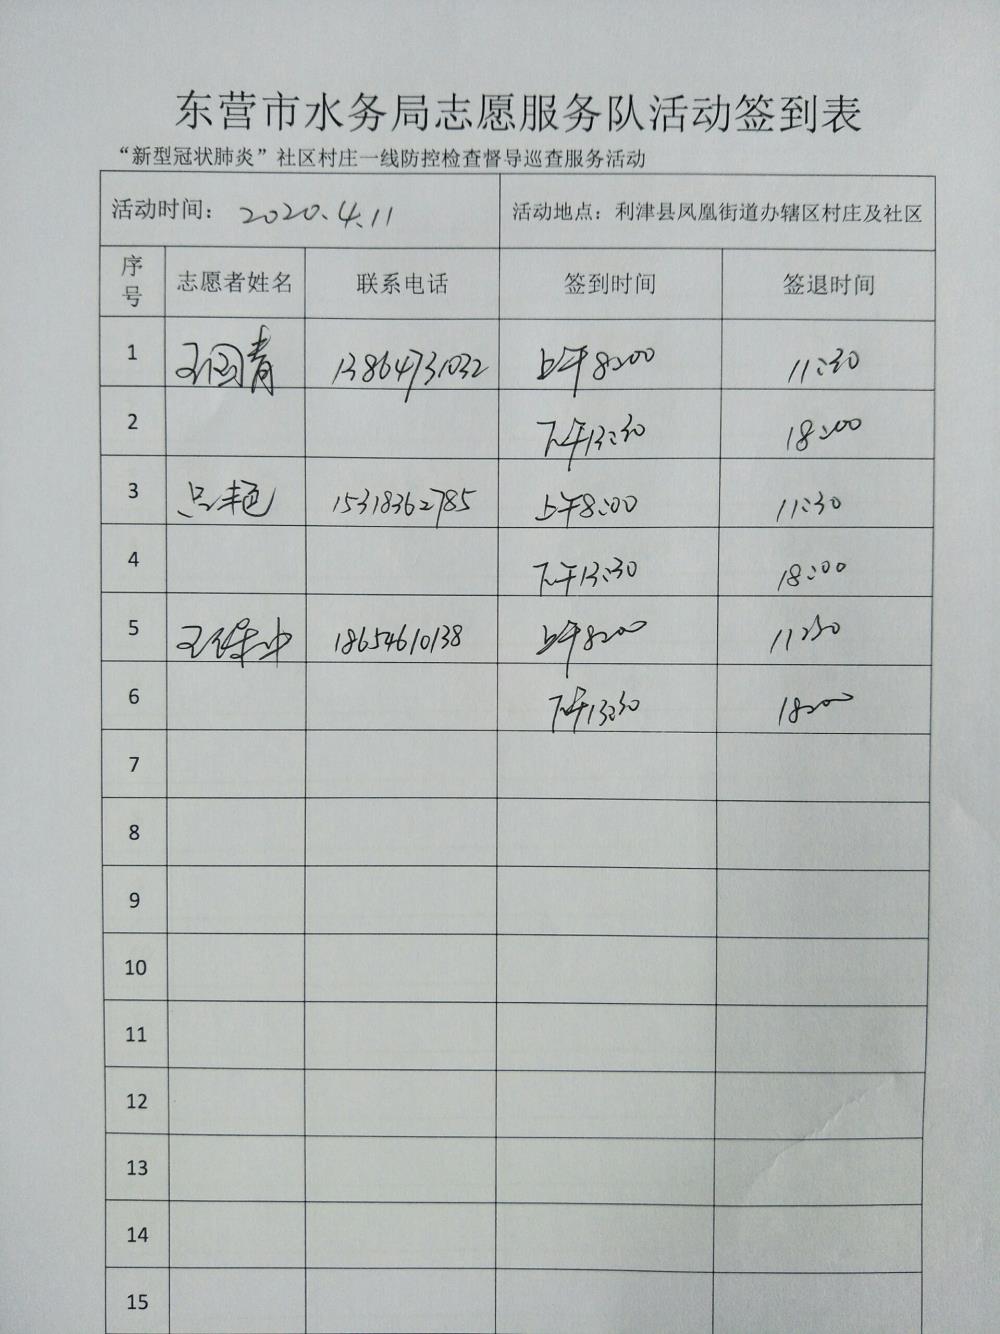 东营市水务局志愿服务队活动签到表
“新型冠状肺炎”社区村庄一线防控检查督导巡查服务活动
活动时间： 2020.4.11 活动地点：利津县凤凰街道办辖区村庄及社区
序号 志愿者姓名 联系电话 签到时间 签退时间
1 王国青 13864731032 上午8:00 11:30
2 下午13:30 18:00
3 吕艳 15318362785 上午8:00 11:30
4 下午13:30 18:00
5 王 18654610138 上午8:00 11:30
6 下午13:30 18:00
7
8
9
10
11
12
13
14
15